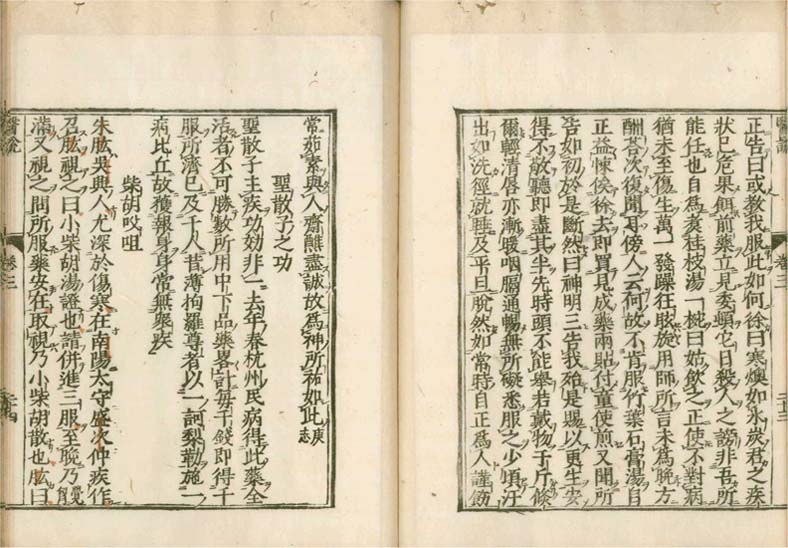 醫說 卷三 二十三
正告曰或教我服此如何徐曰寒燠如氷炭君之疾
狀已危果餌前藥立見委頓它日殺人之謗非吾所
能任也自爲煑桂枝湯一桮曰姑飲之正使不對病
猶未至傷生萬一發躁狂眩旋用師所言未爲晚方
酬荅次復聞耳傍人云何故不肯服竹葉石膏湯自
正益悚俟徐去即買見成藥兩貼付童使煎又聞所
告如初於是斷然曰神明三告我殆是賜以更生安
得不敬聽即盡其半先時頭不能舉若戴物千斤倏
爾輕清唇亦漸暖咽膈通暢無所礙悉服之少頃汗
出如洗徑就睡及平旦脫然如常時自正爲人謹飭
常茹素與人齋醮盡誠故爲神所祐如此庚志
聖散子之功
聖散子主疾功効非一去年春杭州民病得此藥全
活者不可勝數所用中下品藥畧計每千錢即得千
服所濟已及千人昔薄拘羅尊者以一訶梨勒施一
病比丘故獲報身身常無衆疾
柴胡㕮咀
朱肱吳興人尤深於傷寒在南陽太守盛次仲疾作
召肱視之曰小柴胡湯證也請併進三服至晚乃覺
滿又視之問所服藥安在取視乃小柴胡散也肱曰
醫說 卷三 二十四